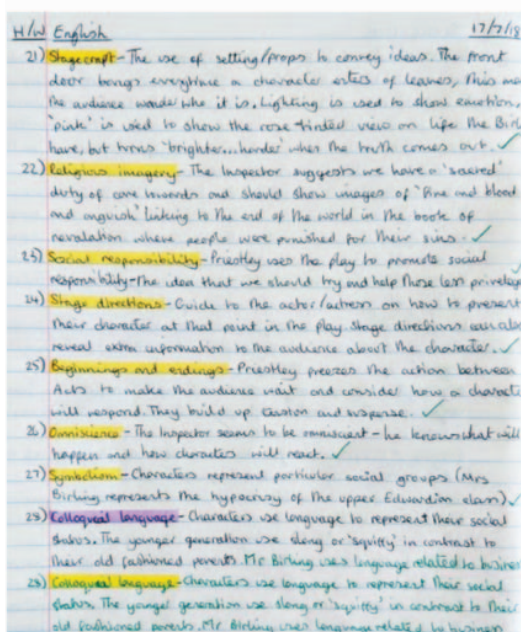 H/W English 17/7/18
21) Stagecraft - The use of setting/props to convey ideas. The front
door bangs everytime a character enters of leaves, this
the audience wonder who it is. Lighting is used to show emotion,
'pink' is used to show the rose-tinted view on life the
have, but turns 'brighter...harder' when the truth comes out. ✓
22) Religious imagery - The Inspector suggests we have a 'sacred'
duty of care towards and should show images of "fire and blood
and anguish" linking to the end of the world in the book of
revalation where people were punished for their sins. ✓
23) Social responsibility - Priestley uses the play to promote social
responsibility - the idea that we should try and help those less
24) Stage directions - Guide to the actor/actress on how to present
their character at that point in the play. Stage directions can also
reveal extra information to the audience about the character. ✓
25) Beginnings and endings - Priestley freezes the action between
Acts to make the audience wait and consider how a
will respond. They build up tension and suspense. ✓
26) Omniscience - The Inspector seems to be omniscient - he knows what will
happen and how characters will react. ✓
27) Symbolism - Characters represent particular social groups (Mrs
Birling represents the hypocrisy of the upper Edwardian class) ✓
28) Colloqueal language - Characters use language to represent their social
status. The younger generation use slang or 'squiffy' in contrast to
their old fashioned parents. Mr Birling uses language related to
28) Colloqueal language - Characters use language to represent their social
status. The younger generation use slang or 'squiffy' in contrast to their
old fashioned parents. Mr Birling uses language related to business